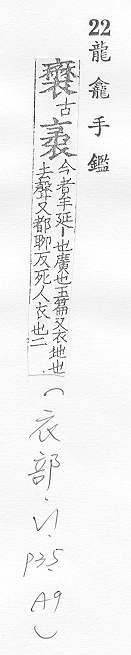 22 龍龕手鑑
古
今
延
也廣也玉篇又衣地也
去聲又都聊反死人衣也二
(衣部.VI.P35.A9)